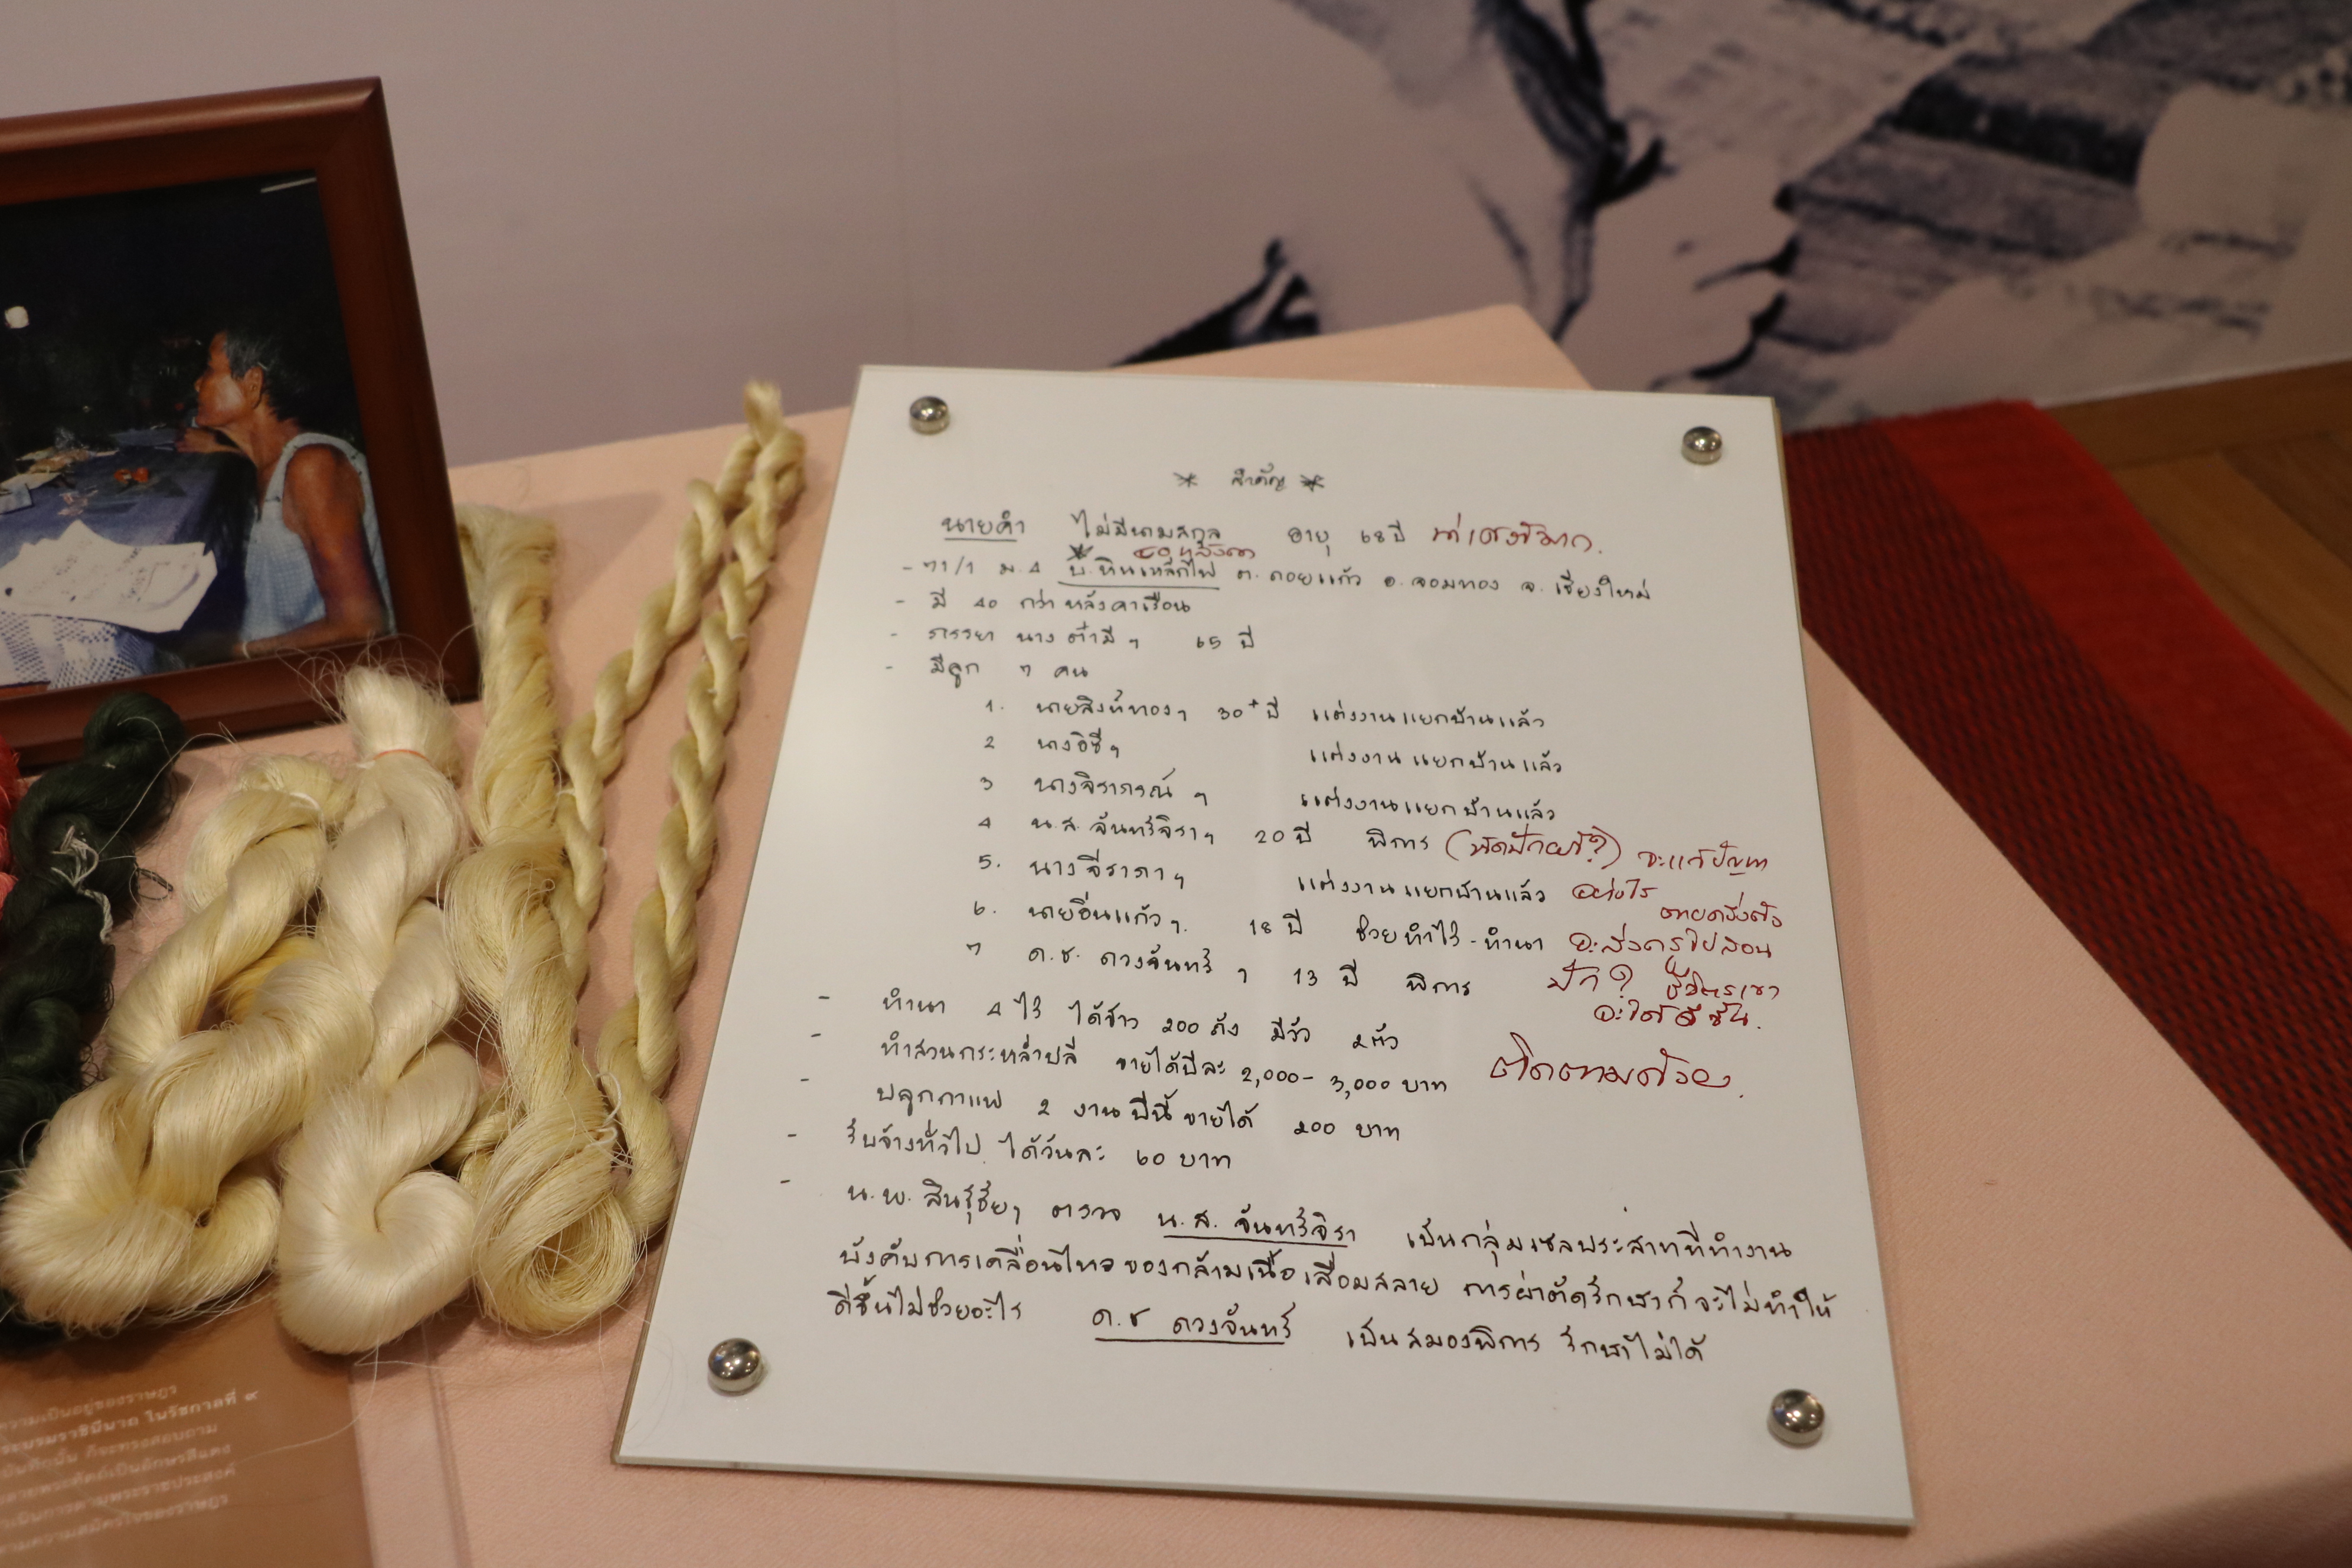 * สำคัญ *
นายคำ ไม่มีนามสกุล อายุ 68 ปี น่าสงสารมาก.
ขอหลังคา
- 71/1 ม.4 * บ.หินเหล็กไฟ ต.ดอยแก้ว อ.จอมทอง จ.เชียงใหม่
- มี 40 กว่าหลังคาเรือน
- ภรรยา นาง ๆ 65 ปี
- มีลูก 7 คน
1. นายสิงห์ทองๆ 30+ ปี แต่งงานแยกบ้านแล้ว
2 นางอิซีๆ แต่งงานแยกบ้านแล้ว
3 นางจิราภรณ์ ๆ แต่งงานแยกบ้านแล้ว
4 น.ส. จันทร์จิราๆ 20 ปี พิการ (หัดปักผ้า?) จะแก้ปัญหา
5. นางจีราภาๆ แต่งงานแยกบ้านแล้ว อย่างไร ตายครึ่งตัว
6. นายอิ่นแก้วๆ. 18 ปี ช่วยทำไร่-ทำนา จะส่งครูไปสอน
7 ด.ช. ดวงจันทร์ ๆ 13 ปี พิการ ปัก? ชีวิตเขา
จะได้ดีขึ้น.
- ทำนา 4 ไร่ ได้ข้าว 200 ถัง มีวัว 2 ตัว
- ทำสวนกระหล่ำปลี ขายได้ปีละ 2,000-3,000 บาท ติดตามด้วย.
- ปลูกกาแฟ 2 งาน ปีนี้ขายได้ 200 บาท
- รับจ้างทั่วไป ได้วันละ 60 บาท
- น.พ. สินธุ์ชัยๆ ตรวจ น.ส. จันทร์จิรา เป็นกลุ่มเซลประสาทที่ทำงาน
บังคับการเคลื่อนไหวของกล้ามเนื้อเสื่อมสลาย การผ่าตัดรักษาก็จะไม่ทำให้
ดีขึ้นไม่ช่วยอะไร ด.ช ดวงจันทร์ เป็นสมองพิการ รักษาไม่ได้
ความเป็นอยู่ของราษฎร
ะบรมราชินีนาถ ในรัชกาลที่ ๙
บันทึกนั้น ก็จะทรงสอบถาม
ลายพระหัตถ์เป็นอักษรสีแดง
เป็นการตามพระราชประสงค์
ามความสมัครใจของราษฎร